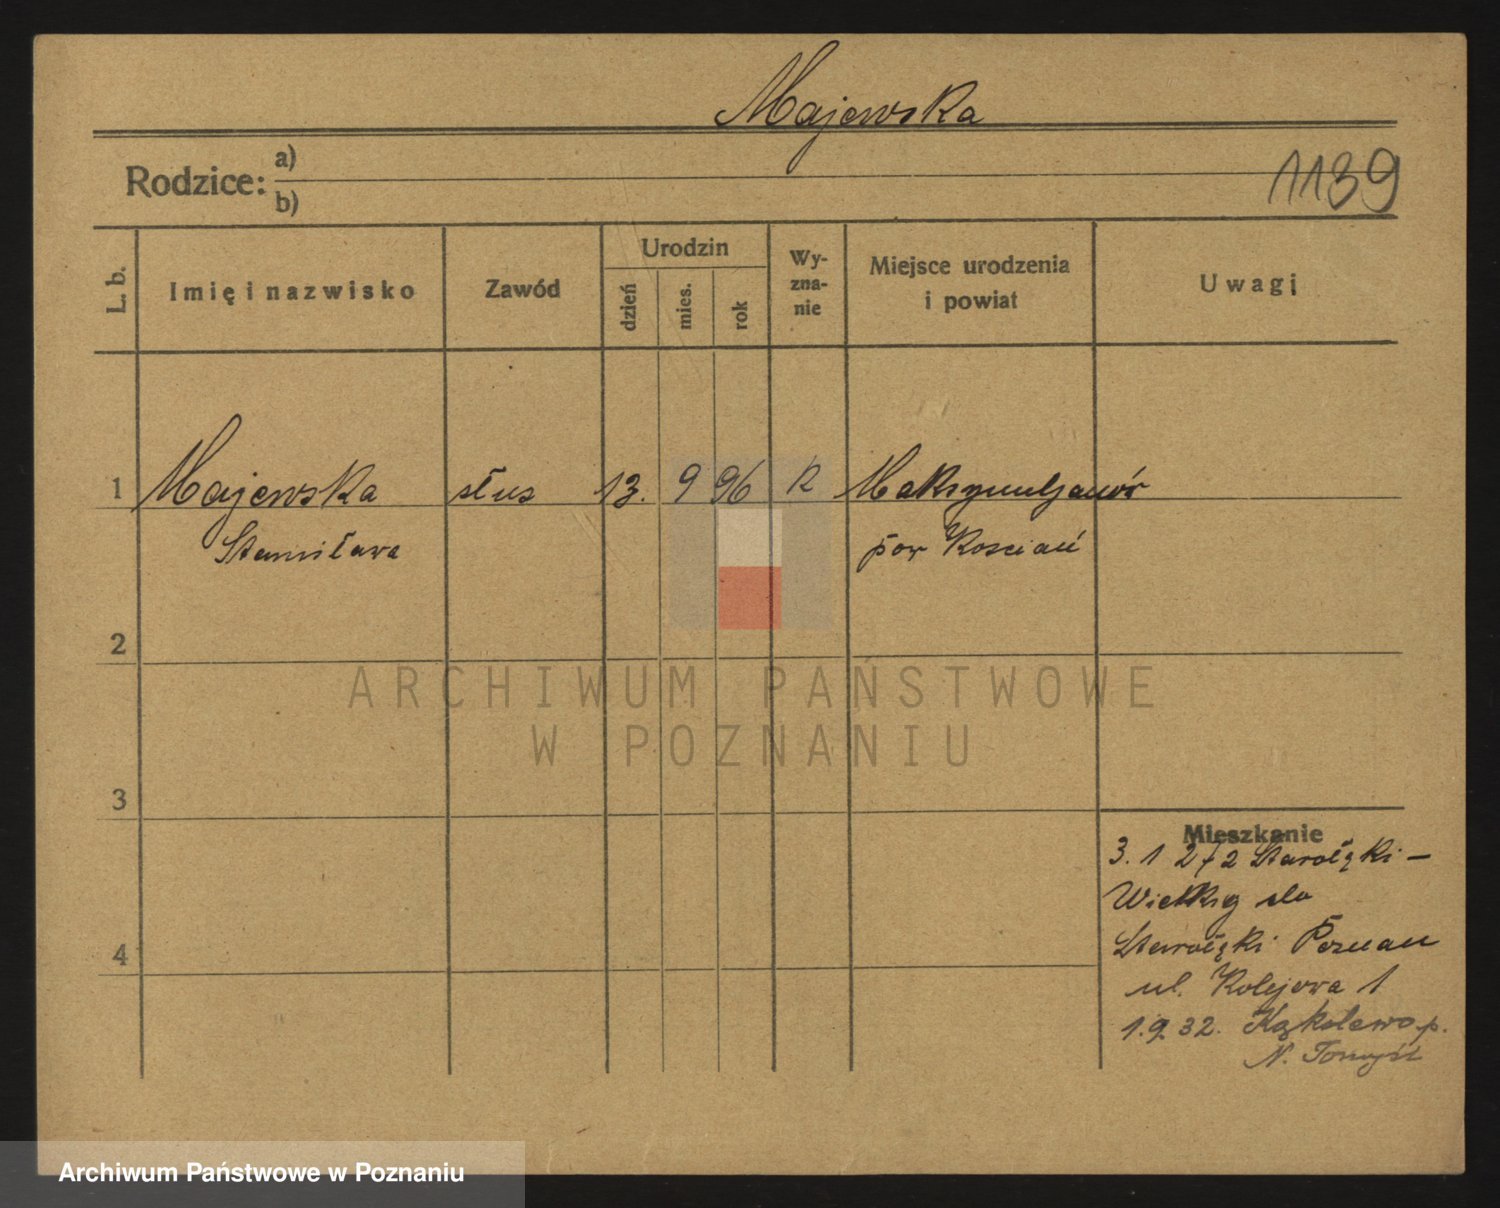 Majewska
Rodzice: a)
b)
1139
L. b.
Imię i nazwisko
Zawód
Urodzin
dzień
mies.
rok
Wy-
zna-
nie
Miejsce urodzenia
i powiat
Uwagi
1 Majewska służ 13. 9 96 R Maksymiljanów
Stanisława pow Kościań
2
3
4
Mieszkanie
3. 1 Starołęki –
Wielkiej do
Starołęki Poznań
ul. Kolejowa 1
1.9.32. Kąkolewo p.
N. Tomyśl
ARCHIWUM PAŃSTWOWE
W POZNANIU
Archiwum Państwowe w Poznaniu